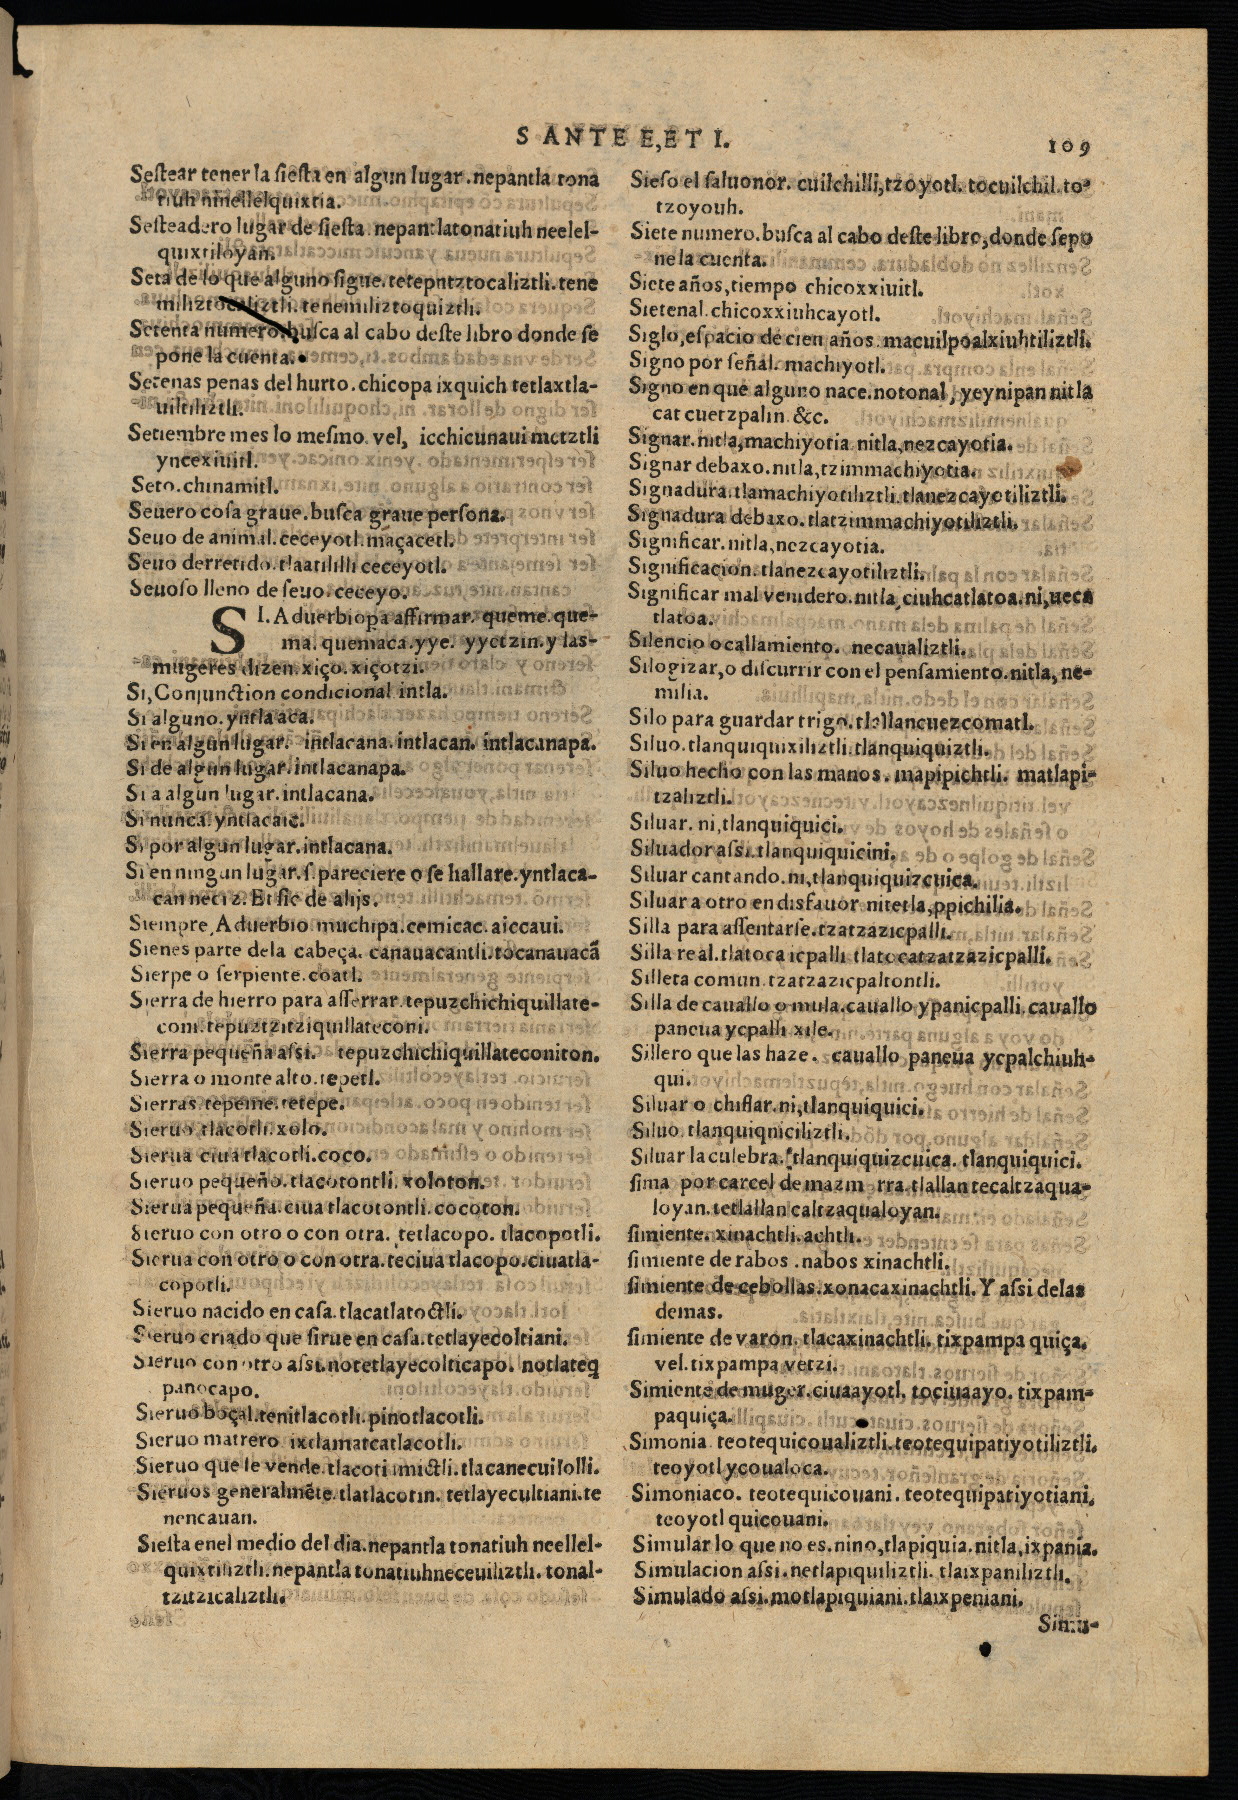 S ANTE E, ET I.
109
Sestear tener la siesta en algun lugar. nepantla tona
tiuh ninellelquixtia.
Sesteadero lugar de siesta nepantlatonatiuh neelel-
quixtiloyan.
Seta de lo que alguno sigue. tetepntztocaliztli. tene
miliztocaliztli. tenemiliztoquiztli.
Setenta numero. busca al cabo deste libro donde se
pone la cuenta.
Setenas penas del hurto. chicopa ixquich tetlaxtla-
uiltiliztli.
Setiembre mes lo mesmo. vel, icchicunaui metztli
yncexiuitl.
Seto. chinamitl.
Seuero cosa graue. busca graue persona.
Seuo de animal. ceceyotl. maçacetl.
Seuo derretido. tlaatililli ceceyotl.
Seuoso lleno de seuo. ceceyo.
SI. Aduerbio pa affirmar. queme. que-
ma. quemaca. yye. yyetzin. y las-
mugeres dizen. xiço. xiçotzi.
Si, Conjunction condicional intla.
Si alguno. yntla aca.
Si en algun lugar. intlacana. intlacan. intlacanapa.
Si de algun lugar. intlacanapa.
Si a algun lugar. intlacana.
Si nunca. yntlacaic.
Si por algun lugar. intlacana.
Si en ningun lugar. s. pareciere o se hallare. yntlaca-
can neciz. Et sic de alijs.
Siempre, Aduerbio muchipa. cemicac. aiccaui.
Sienes parte dela cabeça. canauacantli. tocanauacã
Sierpe o serpiente. coatl.
Sierra de hierro para asserrar. tepuzchichiquillate-
coni. tepuztzitziquillateconi.
Sierra pequeña assi. tepuzchichiquillateconiton.
Sierra o monte alto. tepetl.
Sierras. tepeme. tetepe.
Sieruo. tlacotli. xolo.
Sierua ciua tlacotli. coco.
Sieruo pequeño. tlacotontli. xoloton.
Sierua pequeña. ciua tlacotontli. cocoton.
Sieruo con otro o con otra. tetlacopo. tlacopotli.
Sierua con otro o con otra. teciua tlacopo. ciuatla-
copotli.
Sieruo nacido en casa. tlacatlatoctli.
Sieruo criado que sirue en casa. tetlayecoltiani.
Sieruo con otro assi. notetlayecolticapo. notlateq
panocapo.
Sieruo boçal. tenitlacotli. pinotlacotli.
Sieruo matrero ixtlamatcatlacotli.
Sieruo que se vende. tlacoti mictli. tlacanecuilolli.
Sieruos generalmẽte. tlatlacotin. tetlayecultiani. te
nencauan.
Siesta enel medio del dia. nepantla tonatiuh neellel-
quixtiliztli. nepantla tonatiuhneceuiliztli. tonal-
tzitzicaliztli.
Sieso el saluonor. cuilchilli, tzoyotl. tocuilchil. to-
tzoyouh.
Siete numero. busca al cabo deste libro, donde sepo
ne la cuenta.
Siete años, tiempo chicoxxiuitl.
Sietenal. chicoxxiuhcayotl.
Siglo, espacio de cien años. macuilpoalxiuhtiliztli.
Signo por señal. machiyotl.
Signo en que alguno nace. notonal, yeynipan nitla
cat cuetzpalin &c.
Signar. nitla, machiyotia nitla, nezcayotia.
Signar debaxo. nitla, tzimmachiyotia.
Signadura. tlamachiyotiliztli. tlanezcayotiliztli.
Signadura debaxo. tlatzimmachiyotiliztli.
Significar. nitla, nezcayotia.
Significacion. tlanezcayotiliztli.
Significar mal venidero. nitla, ciuhcatlatoa. ni, ueca
tlatoa.
Silencio o callamiento. necaualiztli.
Silogizar, o discurrir con el pensamiento. nitla, ne-
milia.
Silo para guardar trigo. tlallancuezcomatl.
Siluo. tlanquiquixiliztli. tlanquiquiztli.
Siluo hecho con las manos. mapipichtli. matlapi-
tzaliztli.
Siluar. ni, tlanquiquici.
Siluador assi. tlanquiquicini.
Siluar cantando. ni, tlanquiquizcuica.
Siluar a otro en disfauor nitetla, ppichilia.
Silla para assentarse. tzatzazicpalli.
Silla real. tlatoca icpalli tlatocatzatzazicpalli.
Silleta comun. tzatzazicpaltontli.
Silla de cauallo o mula. cauallo ypanicpalli. cauallo
paneua ycpalli xile.
Sillero que las haze. cauallo paneua ycpalchiuh-
qui.
Siluar o chiflar. ni, tlanquiquici.
Siluo. tlanquiqniciliztli.
Siluar la culebra. tlanquiquizcuica. tlanquiquici.
sima por carcel de mazm rra. tlallan tecaltzaqua-
loyan. tetlallan caltzaqualoyan.
simiente. xinachtli. achtli.
simiente de rabos. nabos xinachtli.
simiente de cebollas. xonacaxinachtli. Y assi delas
demas.
simiente de varon. tlacaxinachtli. tixpampa quiça.
vel. tixpampa vetzi.
Simiente de muger. ciuaayotl. tociuaayo. tixpam-
paquiça.
Simonia. teotequicoualiztli. teotequipatiyotiliztli.
teoyotl ycoualoca.
Simoniaco. teotequicouani. teotequipatiyotiani.
teoyotl quicouani.
Simular lo que no es. nino, tlapiquia. nitla, ixpania.
Simulacion assi. netlapiquiliztli. tlaixpaniliztli.
Simulado assi. motlapiquiani. tlaixpeniani.
Simu-